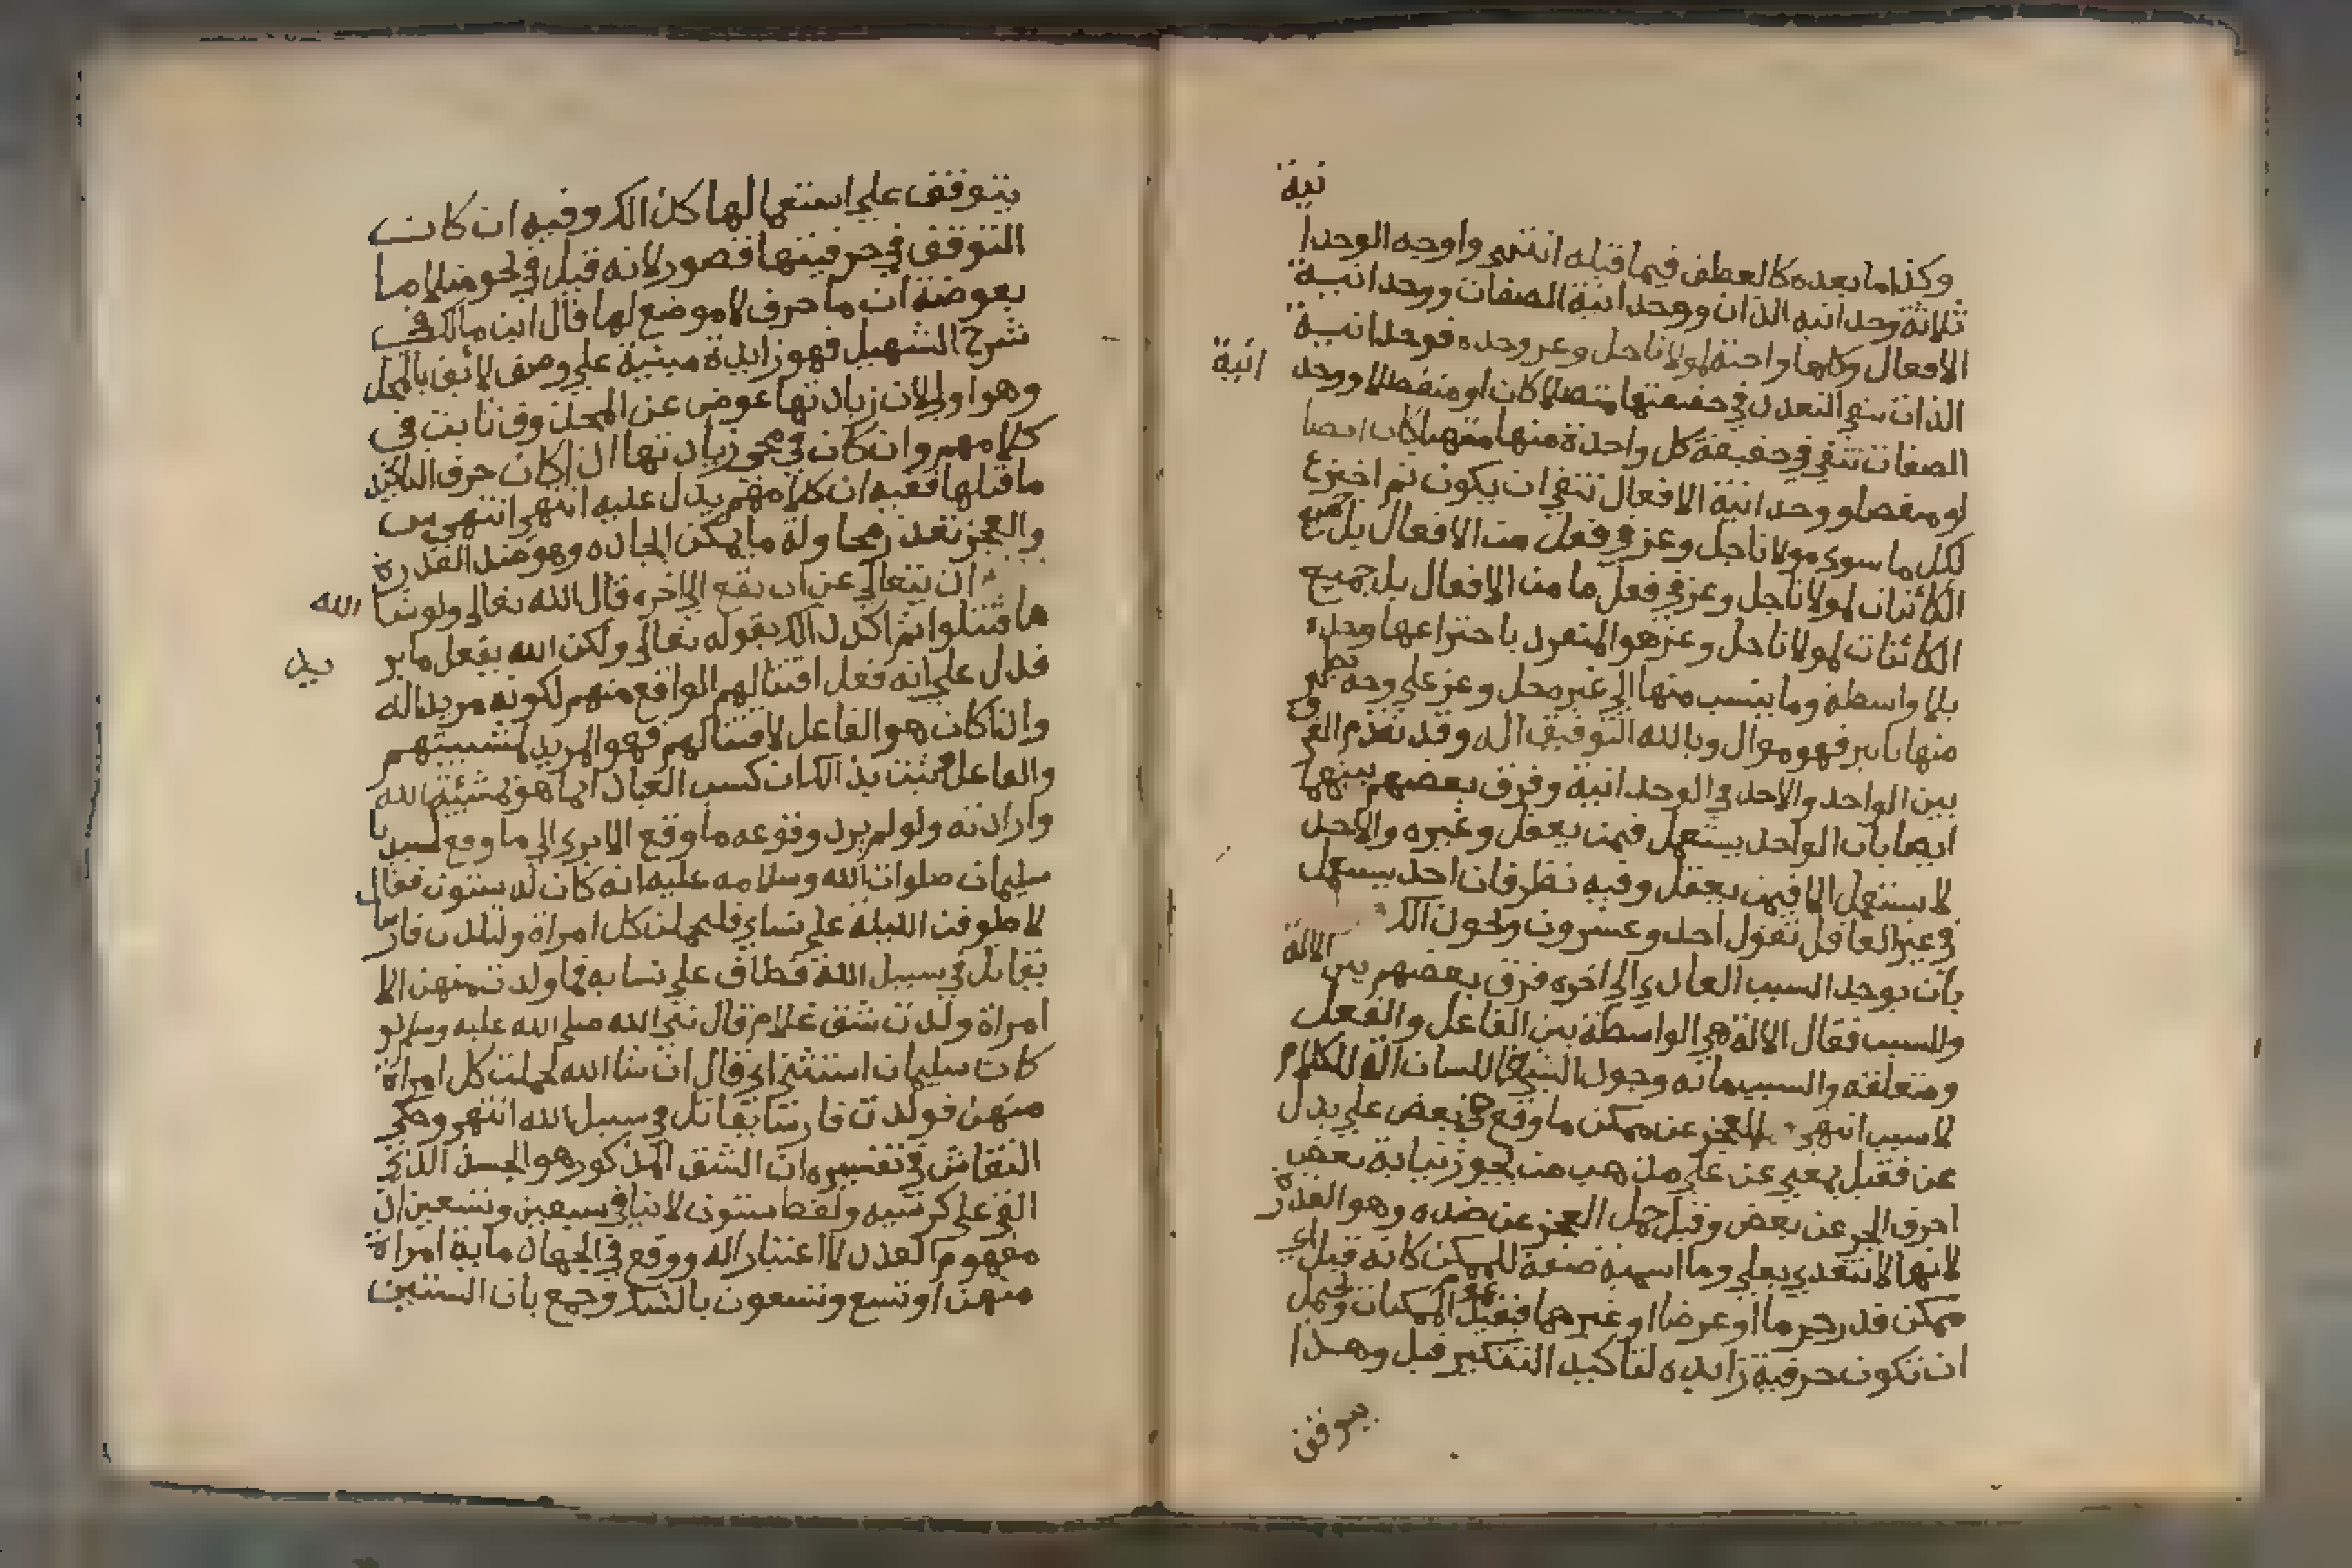 نية
وكذا ما بعده كالعطف فيما قبله انتهى واوجه الوحدا
ثلاثة وحدانية الذات ووحدانية الصفات ووحدانية
الافعال وكلها واجبة لمولانا جل وعز وحده فوحدانية
انية
الذات تنفي التعدد في حقيقتها متصلا كان او منفصلا ووحد
الصفات تنفي في حقيقة كل واحدة منها متصلا كان ايضا
او منفصلا ووحدانية الافعال تنفي ان يكون ثم اختراع
لكل ما سوى مولانا جل وعز في فعل من الافعال بل جميع
الكائنات لمولانا جل وعز في فعل ما من الافعال بل جميع
الكائنات لمولانا جل وعز هو المنفرد باختراعها وحده
بلا واسطة وما ينسب منها الى غيره جل وعز على وجه يظهر
منها تاثير فهو موال وبالله التوفيق اله وقد تقدم الفرق
بين الواحد والاحد في الوحدانية وفرق بعضهم بينهما
ايضا بان الواحد يستعمل فيمن يعقل وغيره والاحد
لا يستعمل الا فيمن يعقل وفيه نظر فان احد يستعمل
في غير العاقل تقول احد وعشرون ونحو ذالك
بان يوجد السبب العادي الى اخره فرق بعضهم بين الالة
والسبب فقال الالة هي الواسطة بين الفاعل والفعل
ومتعلقه والسبب ما به وجود الشيء فاللسان الة للكلام
لا سبب انتهى والعجز عن ممكن ما وقع في بعض على بدل
عن فقيل بمعنى عن على مذهب من يجوز نيابة بعض
احرف الجر عن بعض وقيل حمل العجز عن ضده وهو القدرة
لانها لا تتعدى بعلى وما اسمية صفة للممكن كانه قيل اي
ممكن قدر جرما او عرضا او غيرهما فتفيد عموم الممكنات ويحتمل
ان تكون حرفية زايدة لتاكيد التنكير قبل وهذا
يتوقف
يتوقف على استعمالها كذالك وفيه ان كان
التوقف في حرفيتها فقصور لانه قيل في نحو مثلا ما
بعوضة ان ما حرف لا موضع لها قال ابن مالك في
شرح التسهيل فهو زايدة مبنية على وصف لائق بالمحل
وهو اولى لان زيادتها عوض عن المحذوف ثابت في
كلامهم وان كان في نحو زيادتها اذا كان حرف التاكيد
ما قبلها ففيه ان كلامهم يدل عليه انتهى انتهى يس
والعجز تعذر محاولة ما يمكن ايجاده وهو ضد القدرة
ان يتعالى عن ان يقع الى اخره قال الله تعالى ولو شا الله
ما اقتتلوا ثم اكد ذالك بقوله تعالى ولكن الله يفعل ما ير
يد
فدل على انه فعل اقتتالهم الواقع منهم لكونه مريدا له
واذا كان هو الفاعل لاقتتالهم فهو المريد لمشيئتهم
والفاعل فثبت بذالك ان كسب العباد انما هو بمشيئة الله
وارادته ولو لم يرد وقوعه ما وقع الا يرى الى ما وقع لسيدنا
سليمان صلوات الله وسلامه عليه انه كان له ستون فقال
لاطوفن الليلة على نساي فليحملن كل امراة ولتلدن فارسا
يقاتل في سبيل الله فطاف على نسايه فما ولدت منهن الا
امراة ولدت شق غلام قال نبي الله صلى الله عليه وسلم لو
كان سليمان استثنى اي قال ان شا الله لحملت كل امراة
منهن فولدت فارسا يقاتل في سبيل الله انتهى وحكى
النقاش في تفسيره ان الشق المذكور هو الجسد الذي
القي على كرسيه ولفظ ستون لا ينافي سبعين وتسعين اذ
مفهوم العدد لا اعتبار له ووقع في الجهاد ماية امراة
منهن او تسع وتسعون بالشك وجمع بان الستين